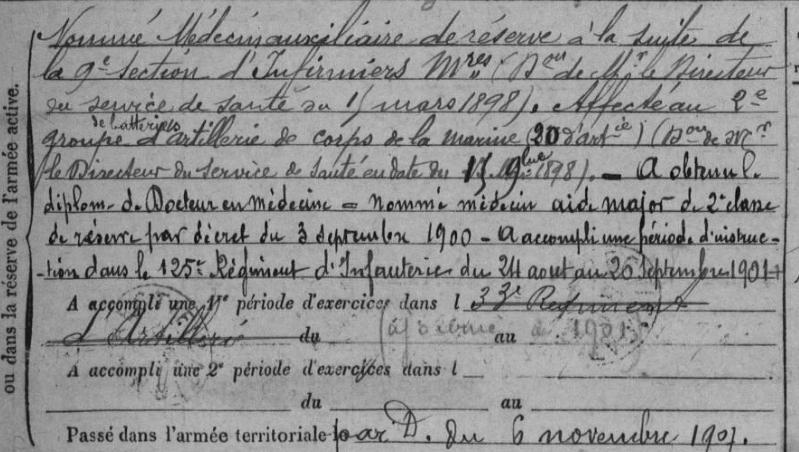 ou dans la réserve de l'armée active.
Nommé Médecin auxiliaire de réserve à la suite de
la 9e Section d'Infirmiers Mres (Don de Mr le Directeur
du service de santé du 15 mars 1898). Affecté au 2e
de batteries
groupe d'artillerie de corps de la marine (20 d'artie) (Don de Mr
le Directeur du Service de Santé en date du 15 9bre 1898). — A obtenu le
diplom. de Docteur en médecine = Nommé médecin aide major de 2e classe
de réserve par décret du 3 septembre 1900 – A accompli une période d'instruc-
-tion dans le 125e Régiment d'Infanterie du 24 aout au 20 Septembre 1901
A accompli une 1re période d'exercices dans l 33e Régiment
d'Artillerie du au 1901
A accompli une 2e période d'exercices dans l
du au
Passé dans l'armée territoriale le par D. du 6 novembre 1907.